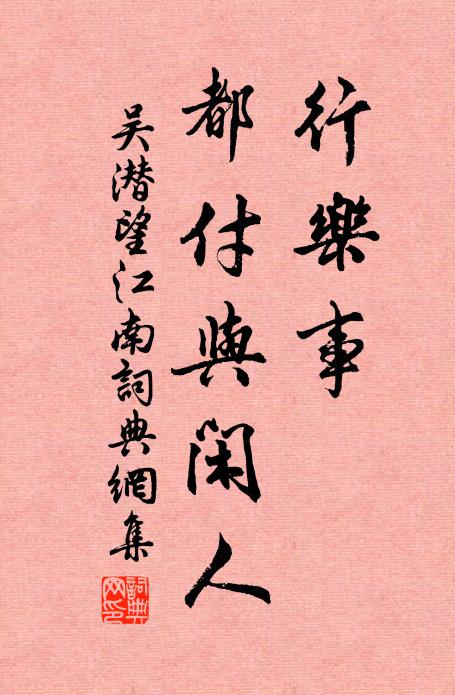 行樂事
都付與閑人
吴潜望江南詞典網集
詞典網印